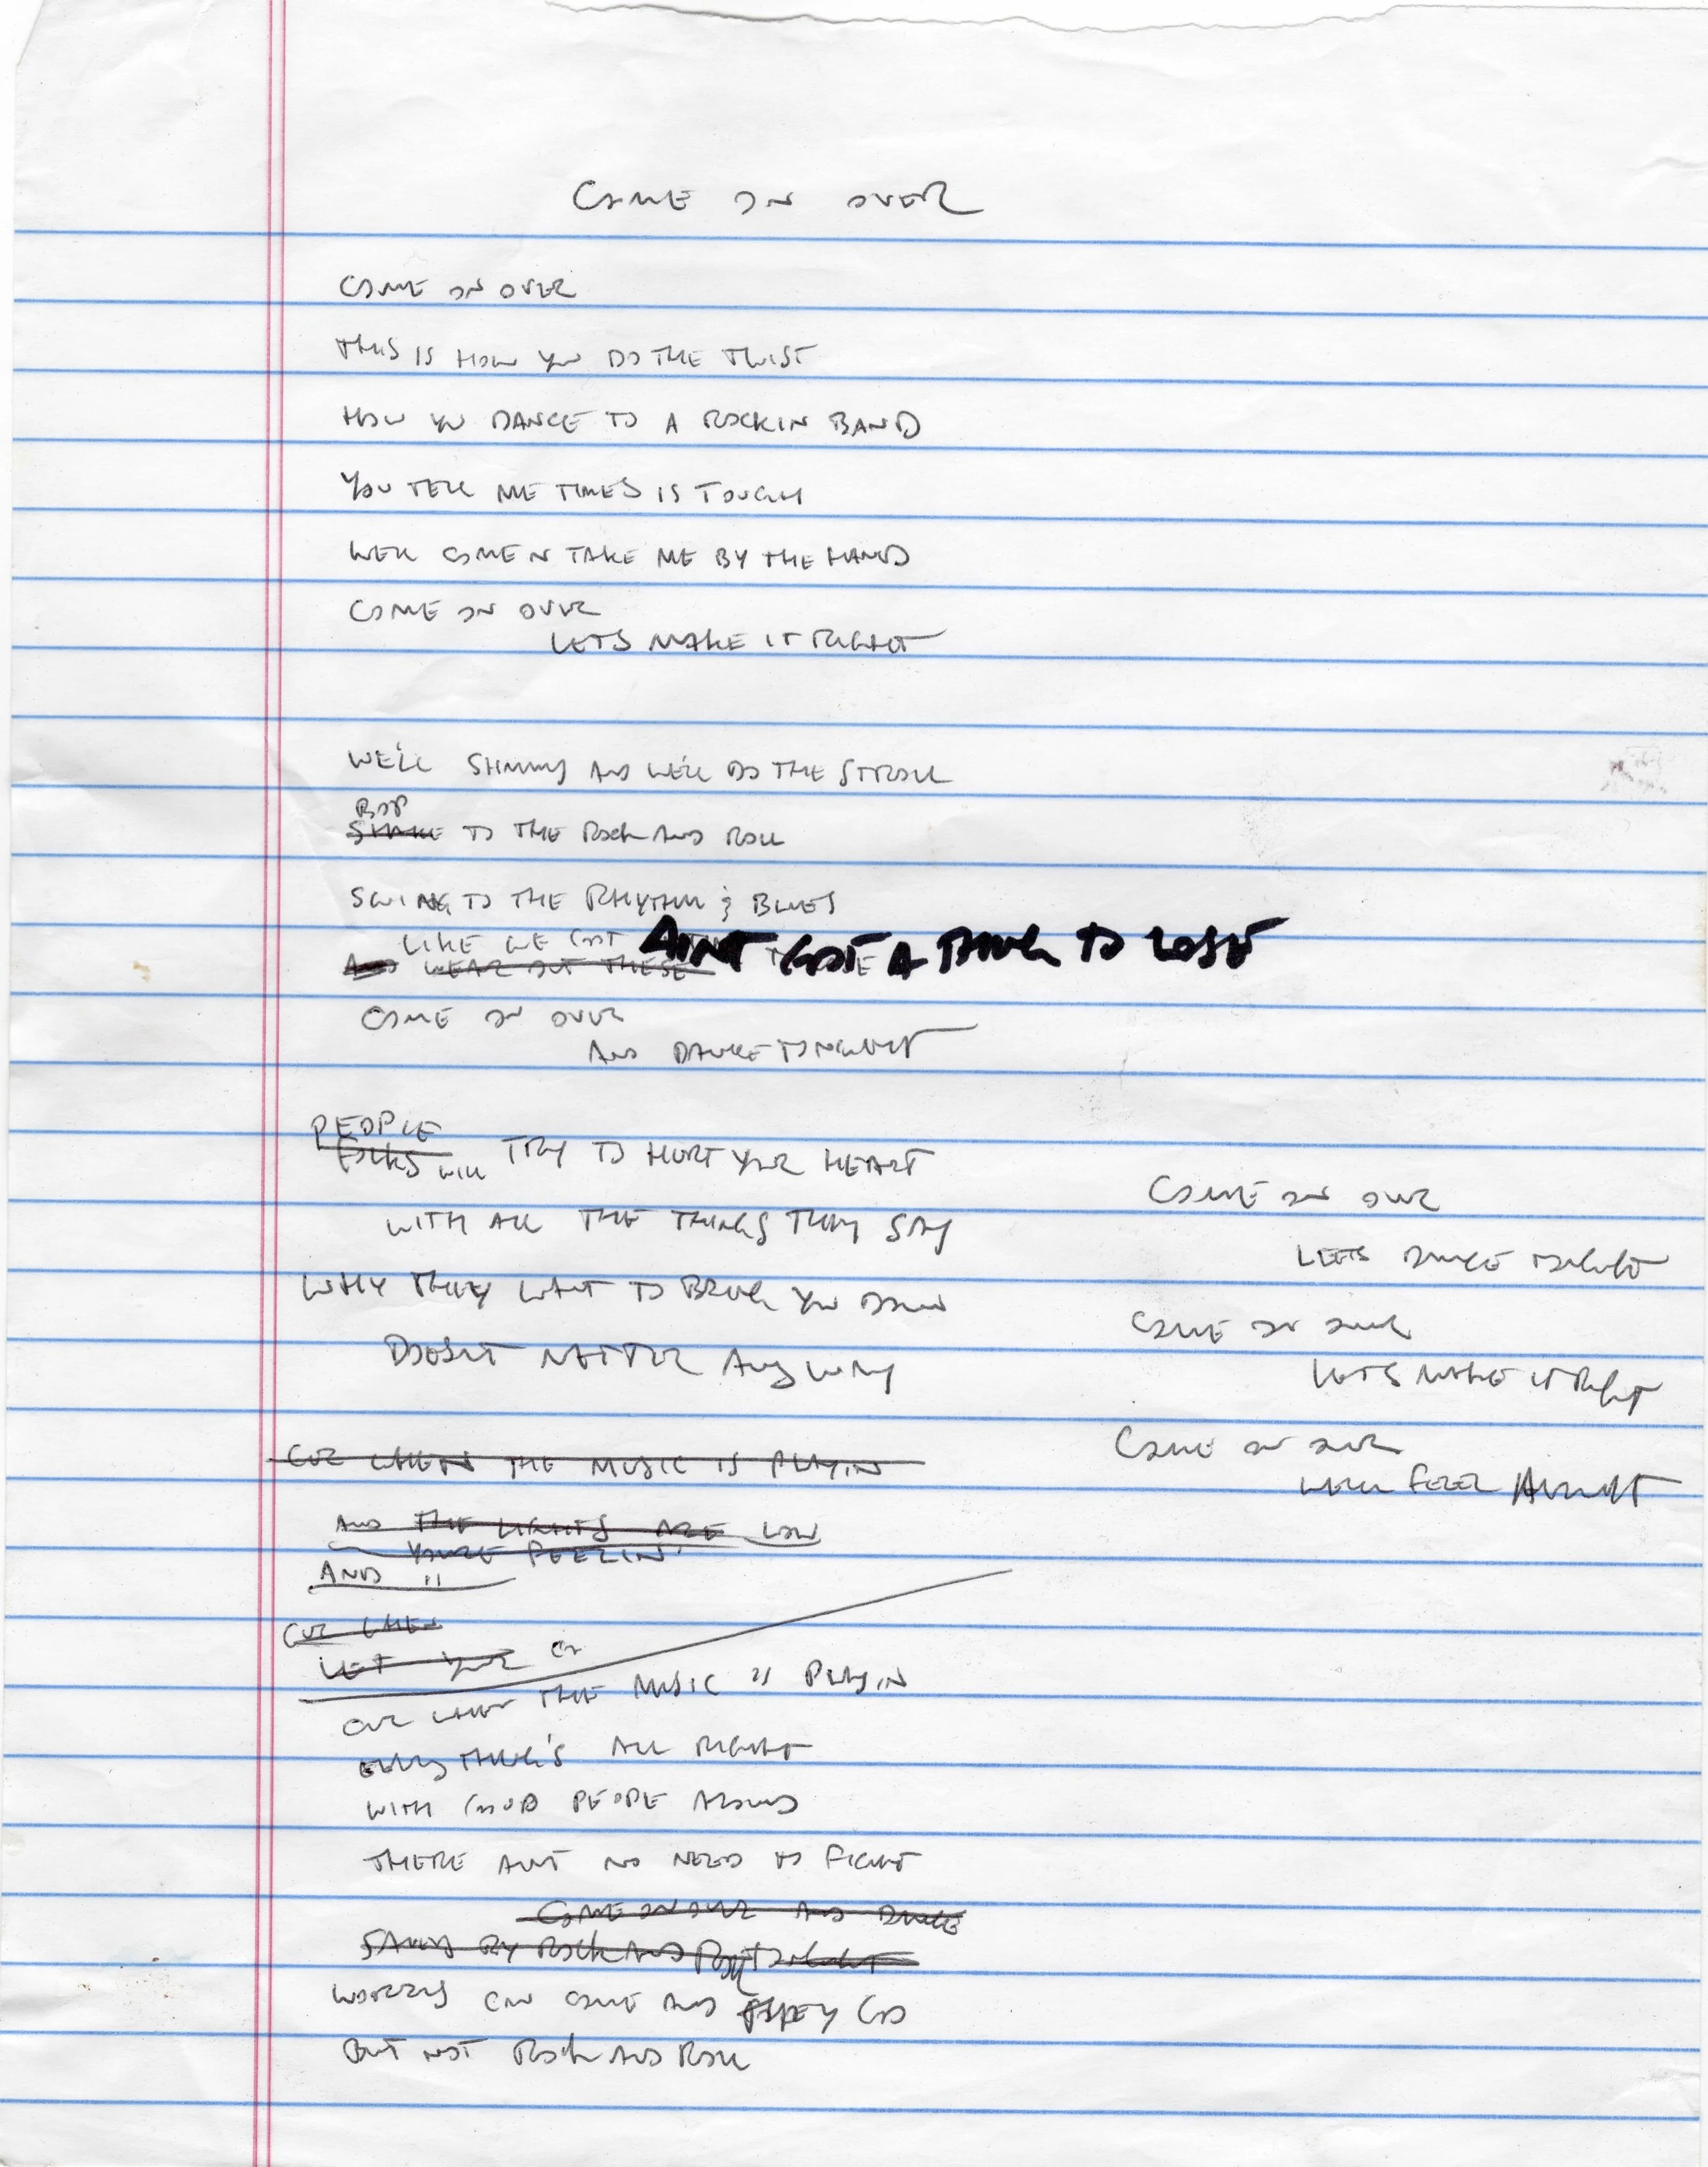 COME ON OVER
COME ON OVER
THIS IS HOW YOU DO THE TWIST
HOW YOU DANCE TO A ROCKIN BAND
YOU TELL ME TIMES IS TOUGH
WELL COME N TAKE ME BY THE HAND
COME ON OVER
LETS MAKE IT RIGHT
WE'LL SHIMMY AND WE'LL DO THE STROLL
BOP
SHAKE TO THE ROCK AND ROLL
SWING TO THE RHYTHM & BLUES
LIKE WE GOT
AINT GOT A THING TO LOSE
AND WEAR OUT THESE
COME ON OVER
AND DANCE TONIGHT
PEOPLE
FOLKS WILL TRY TO HURT YOUR HEART
WITH ALL THE THINGS THEY SAY
WHY THEY WANT TO BRING YOU DOWN
DOESNT MATTER ANYWAY
CUZ WHEN THE MUSIC IS PLAYIN
AND THE LIGHTS ARE LOW
YOURE FEELIN'
AND "
CUZ WHEN
LET YOUR
CUZ WHEN THE MUSIC IS PLAYIN
EVERYTHING'S ALL RIGHT
WITH GOOD PEOPLE AROUND
THERE AINT NO NEED TO FIGHT
COME ON OVER AND DANCE
SAVED BY ROCK AND ROLL TONIGHT
WORRYS CAN COME AND THEY GO
BUT NOT ROCK AND ROLL
COME ON OVER
LETS DANCE TONIGHT
COME ON OVER
LETS MAKE IT RIGHT
COME ON OVER
WELL FEEL ALRIGHT